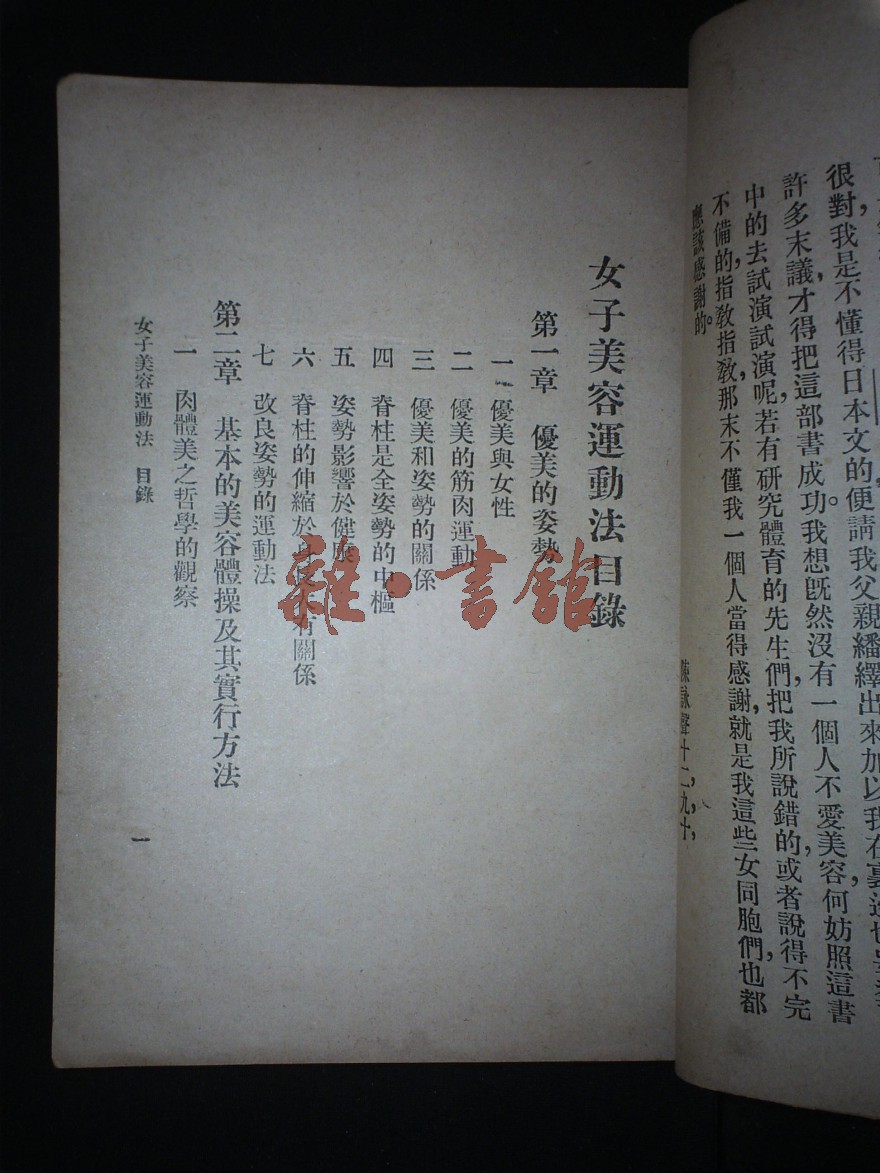 很對,我是不懂得日本文的,便請我父親繙繹出來,加以我在裏
許多末議,才得把這部書成功。我想旣然沒有一個人不愛美容,何妨照這書
中的去試演試演呢,若有研究體育的先生們,把我所說錯的,或者說得不完
不備的,指敎指敎,那末不僅我一個人當得感謝,就是我這些女同胞們,也都
應該感謝的。
陳詠聲十二,九,十,
女子美容運動法目錄
第一章 優美的姿勢
一 優美與女性
二 優美的筋肉運動
三 優美和姿勢的關係
四 脊柱是全姿勢的中樞
五 姿勢影響於健康
六 脊柱的伸縮於 有關係
七 改良姿勢的運動法
第二章 基本的美容體操及其實行方法
一 肉體美之哲學的觀察
女子美容運動法 目錄
一
雜·書館